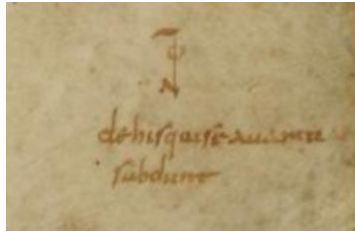 dehisquiseauaritie
subdunt